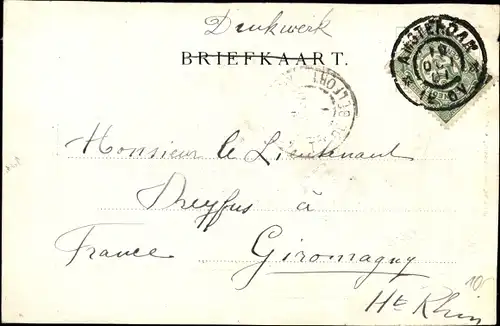 Drukwerk
BRIEFKAART.
AMSTERDAM
BELFORT
Monsieur le Lieutenant
Dreyfus à
France Giromagny
Ht Rhin
10